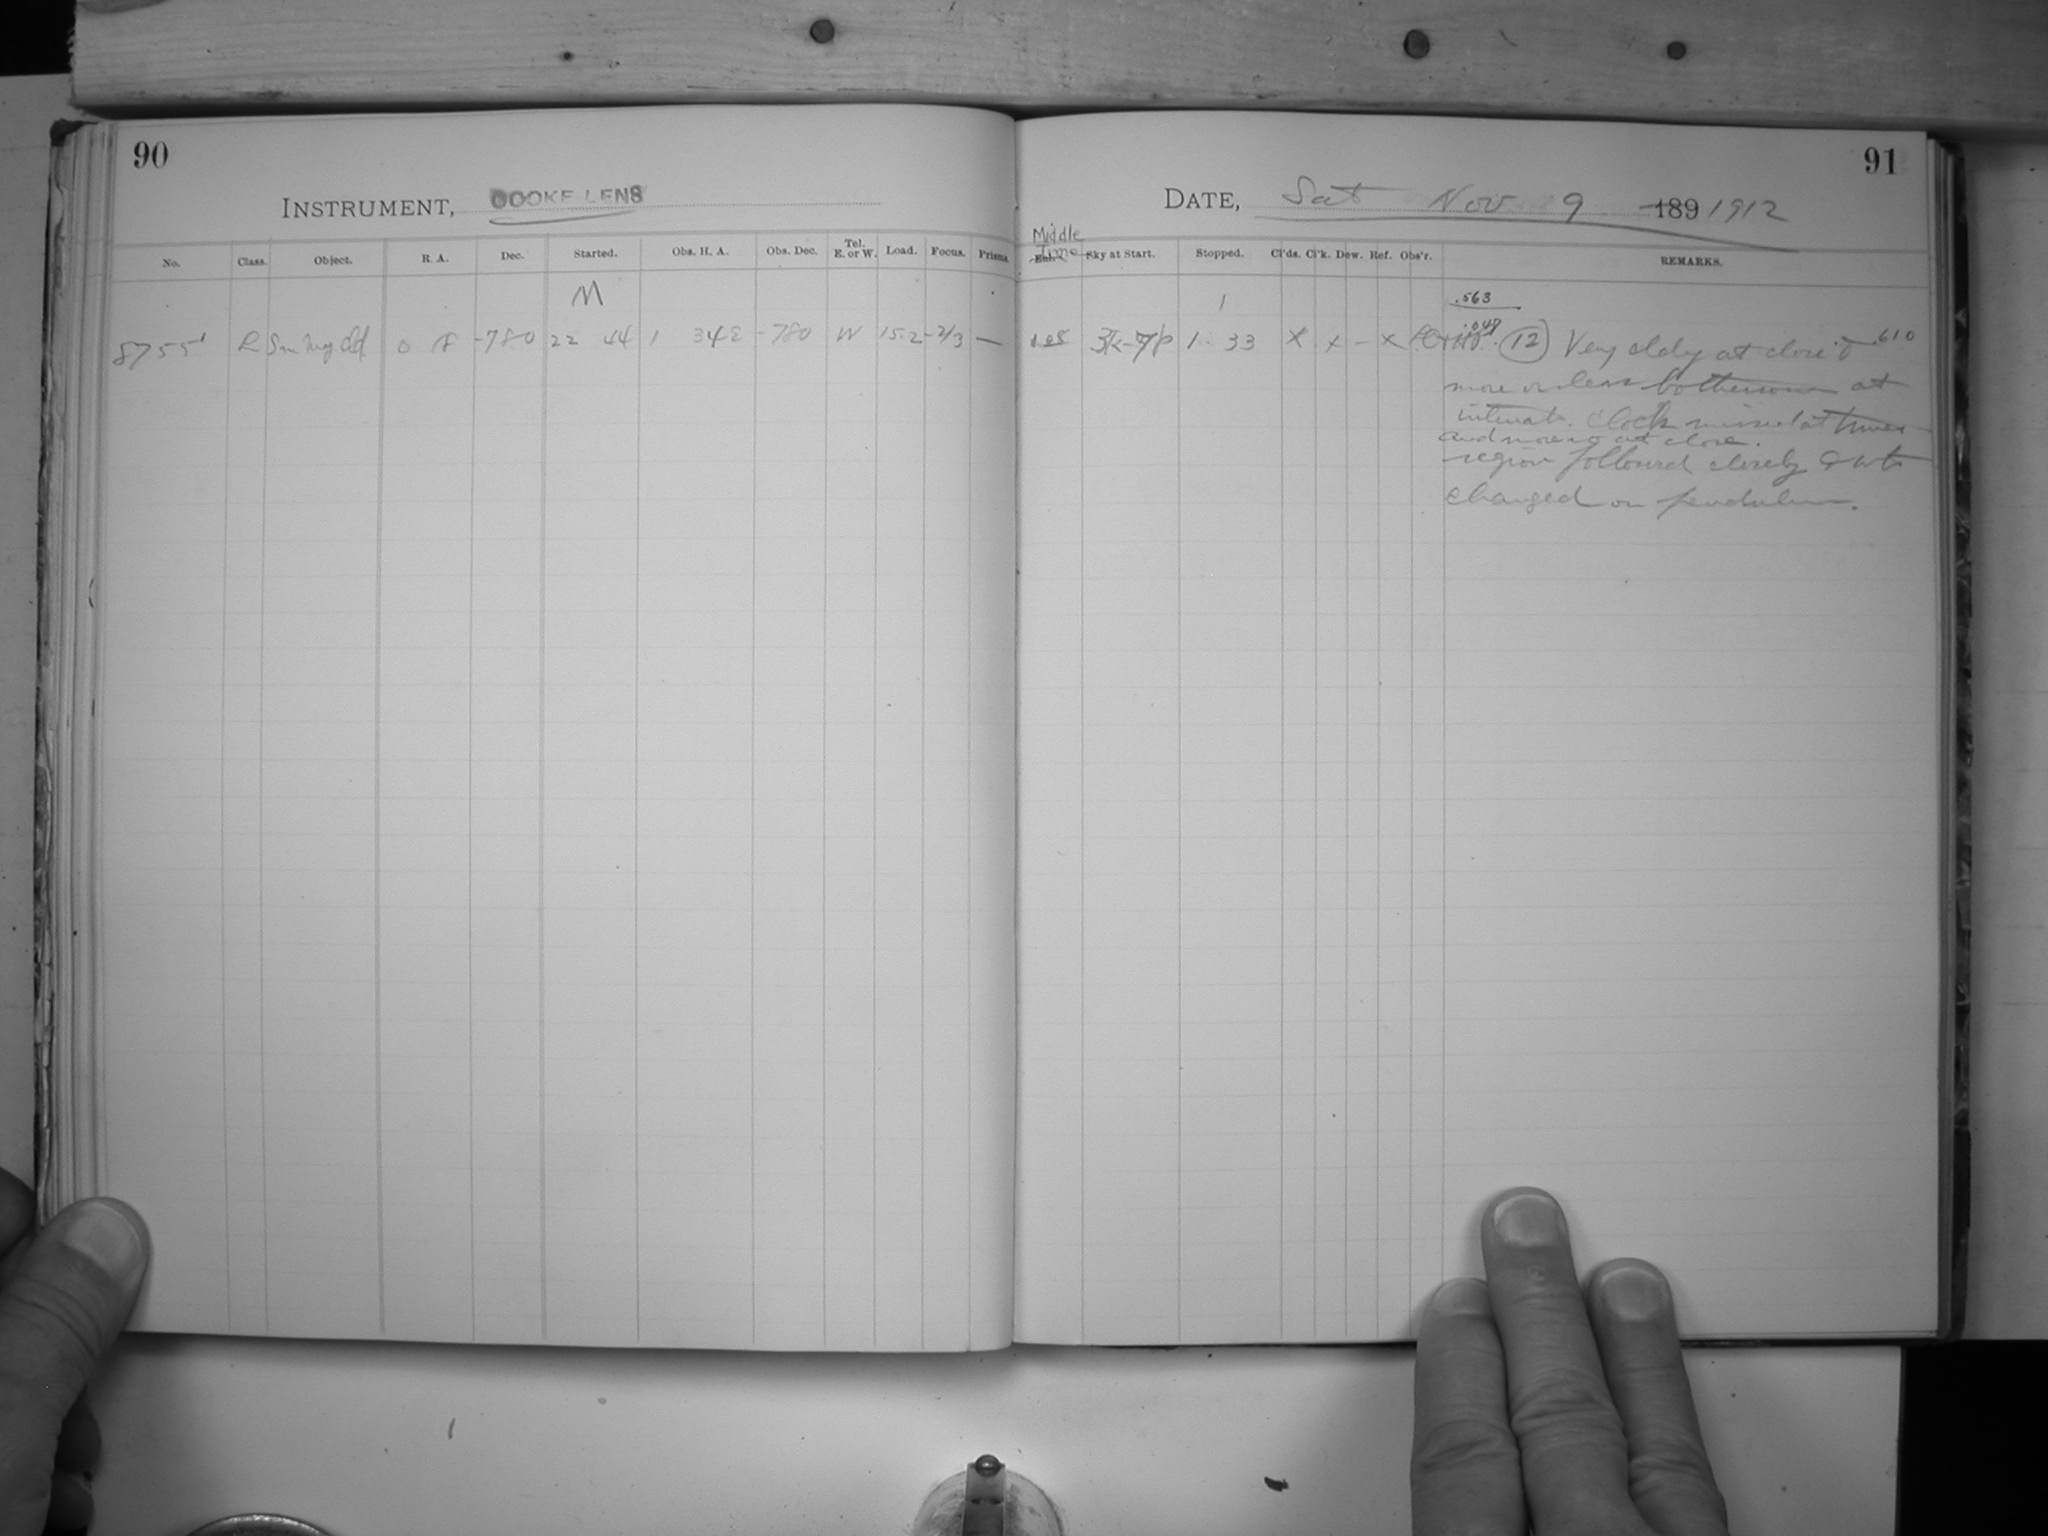 90
91
INSTRUMENT, COOKE LENS
DATE, Sat Nov 9 189 1912
No. Class. Object. R. A. Dec. Started. Obs. H. A. Obs. Dec. Tel. E. or W. Load. Focus. Prisms.
Middle Time
Sky at Start. Stopped. Cl'ds. Cl'k. Dew. Ref. Obs'r. REMARKS.
M
1
.563
8755 R Sm Mg Cld 0 -780 22 44 1 34 E -780 W 15.2 -2/3 —
1 33 x x - x .047 12 Very cldy at close & .610
more or less bothersome at
intervals. Clock missed at times
and more so at close.
region followed closely & wts
changed on pendulum.